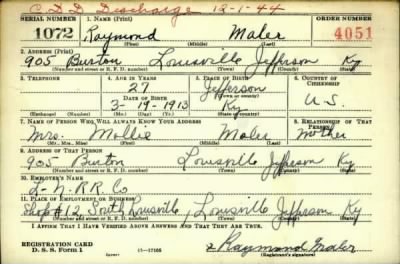 C.D.D. Discharge 12-1-44
SERIAL NUMBER 1. NAME (Print) ORDER NUMBER
1072 Raymond Maler 4051
(First) (Middle) (Last)
2. ADDRESS (Print)
905 Burton Louisville Jefferson Ky
(Number and street or R. F. D. number) (Town) (County) (State)
3. TELEPHONE 4. AGE IN YEARS 5. PLACE OF BIRTH 6. COUNTRY OF CITIZENSHIP
27 Jefferson
DATE OF BIRTH (Town or county)
3-19-1913 Ky U.S.
(Exchange) (Number) (Mo.) (Day) (Yr.) (State or country)
7. NAME OF PERSON WHO WILL ALWAYS KNOW YOUR ADDRESS 8. RELATIONSHIP OF THAT PERSON
Mrs. Mollie Maler Mother
(Mr., Mrs., Miss) (First) (Middle) (Last)
9. ADDRESS OF THAT PERSON
905 Burton Louisville Jefferson Ky
(Number and street or R. F. D. number) (Town) (County) (State)
10. EMPLOYER'S NAME
L-N-RR. Co
11. PLACE OF EMPLOYMENT OR BUSINESS
Shop #12 South Louisville, Louisville Jefferson Ky
(Number and street or R. F. D. number) (Town) (County) (State)
I AFFIRM THAT I HAVE VERIFIED ABOVE ANSWERS AND THAT THEY ARE TRUE.
REGISTRATION CARD
D. S. S. Form 1 Raymond Maler
(Registrant's signature)